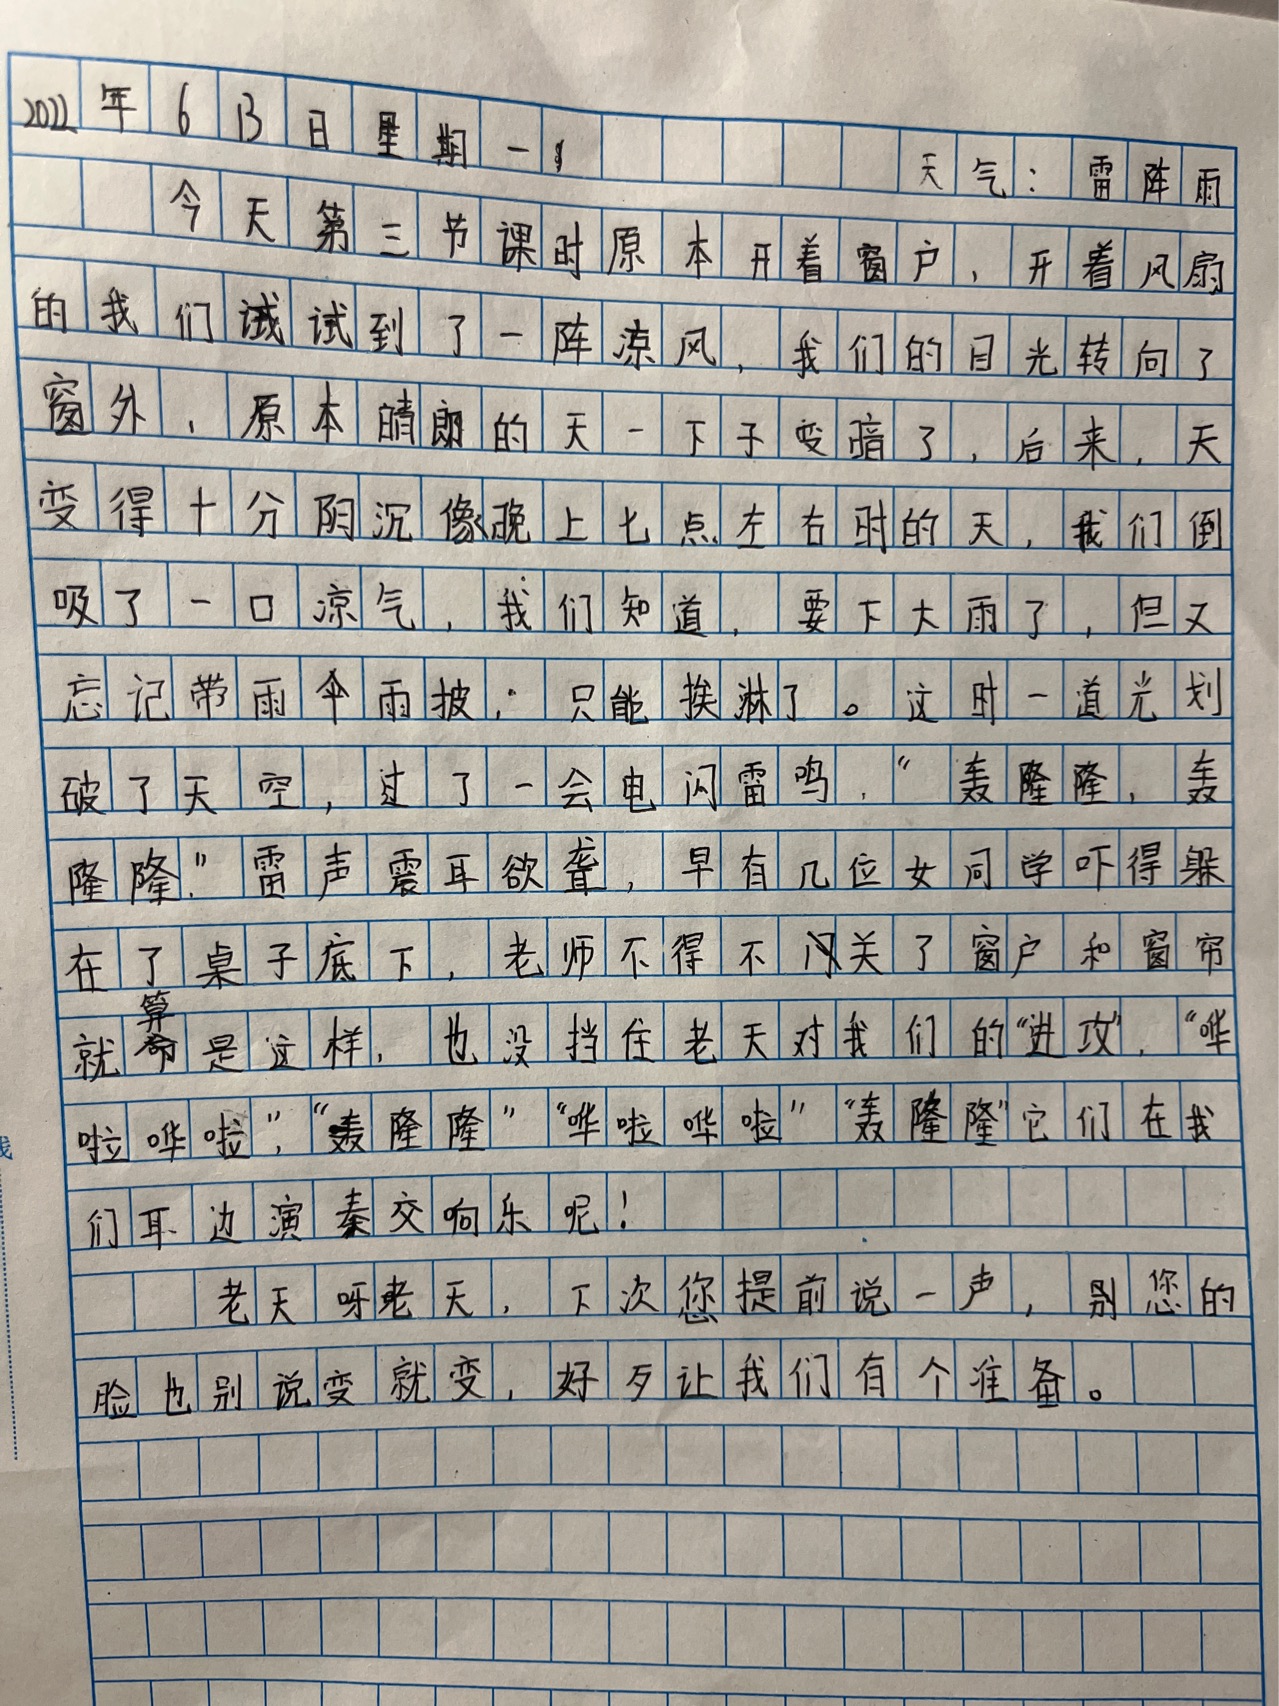 2022年6 13日星期一 天气：雷阵雨
今天第三节课时原本开着窗户，开着风扇
的我们试到了一阵凉风，我们的目光转向了
窗外，原本晴朗的天一下子变暗了，后来，天
变得十分阴沉像晚上七点左右时的天，我们倒
吸了一口凉气，我们知道，要下大雨了，但又
忘记带雨伞雨披，只能挨淋了。这时一道光划
破了天空，过了一会电闪雷鸣，“轰隆隆，轰
隆隆.”雷声震耳欲聋，早有几位女同学吓得躲
在了桌子底下，老师不得不关了窗户和窗帘
就算是这样，也没挡住老天对我们的“进攻”，“哗
啦哗啦”，“轰隆隆”“哗啦哗啦”“轰隆隆”它们在我
们耳边演奏交响乐呢！
老天呀老天，下次您提前说一声，别您的
脸也别说变就变，好歹让我们有个准备。